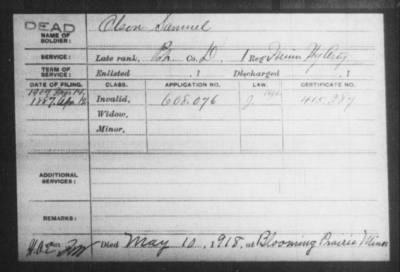 DEAD
NAME OF SOLDIER: Olson Samuel
SERVICE: Late rank, Co. D, 1 Reg't Minn Hy Arty
TERM OF SERVICE: Enlisted , 1 Discharged , 1
DATE OF FILING. CLASS. APPLICATION NO. LAW. CERTIFICATE NO.
1887, Apr Invalid, 608.076
Widow,
Minor,
ADDITIONAL SERVICES:
REMARKS:
Died May 10, 1918, at Blooming Prairie Minn